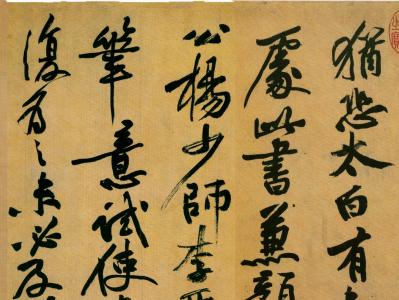 猶恐太白有
處此書兼顏
公楊少師李
筆意試使
復為之未必及